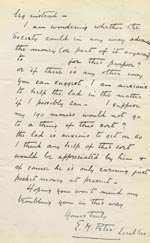 I am wondering whether the
Society could in any way advance
the money (or part of it anyway)
to for this purpose?
or if there is any other way
you can suggest, I am anxious
to help the lad in the matter
if I possibly can. I suppose
my 190 monies would not go
to a thing of this sort?
The lad is anxious to get on so
I think any help of this sort
would be appreciated by him &
of course he is only earning just
pocket money at present.
Hoping you won't mind my
troubling you in this way
Yours truly,
E. M.